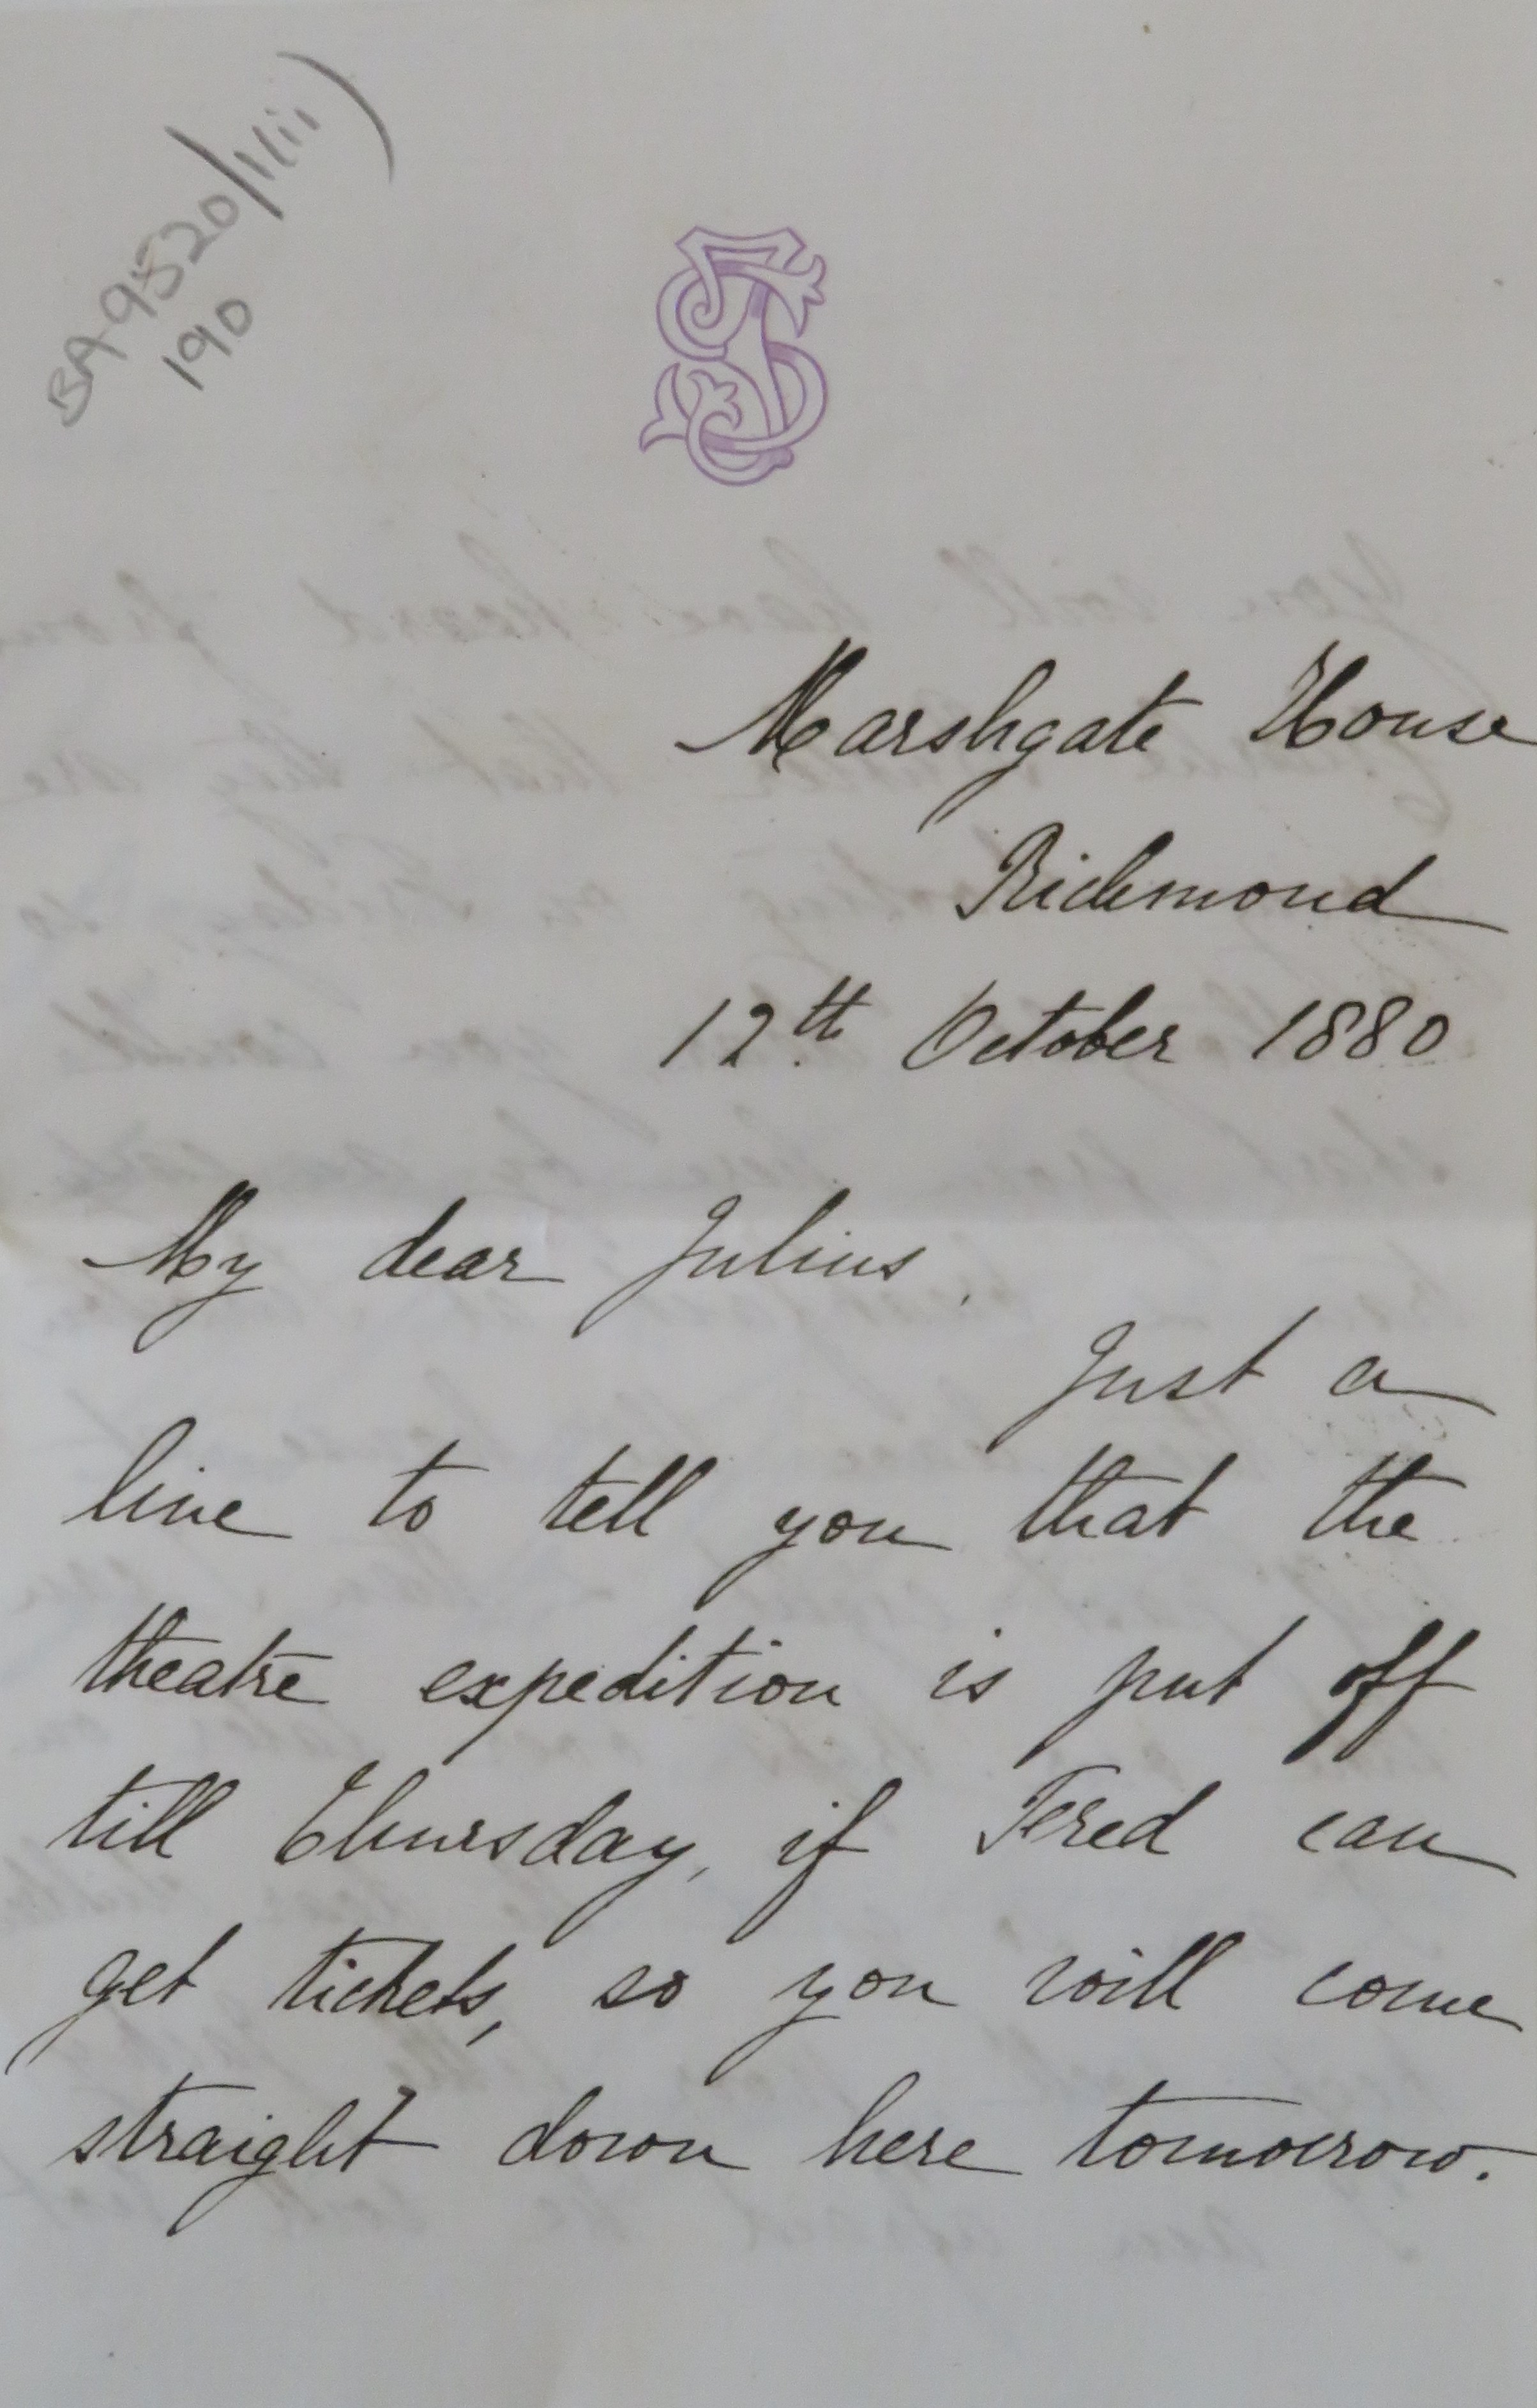 BA 9520/1/ii)
190
Marshgate House
Richmond
12th October 1880
My dear Julius,
Just a
line to tell you that the
theatre expedition is put off
till Thursday, if Fred can
get tickets, so you will come
straight down here tomorrow.